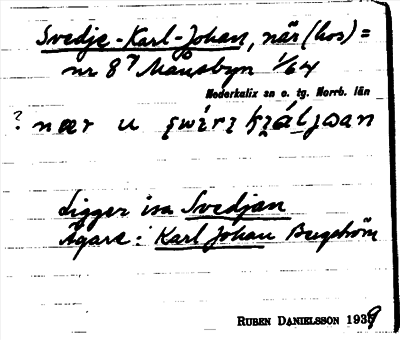 Svedje-Karl-Johan, när (hos) =
nr 8⁷ Månsbyn 1/64
Nederkalix sn o. tg. Norrb. län
? nær u
Ligger isa Svedjan
Ägare: Karl Johan Bergström
RUBEN DANIELSSON 1939